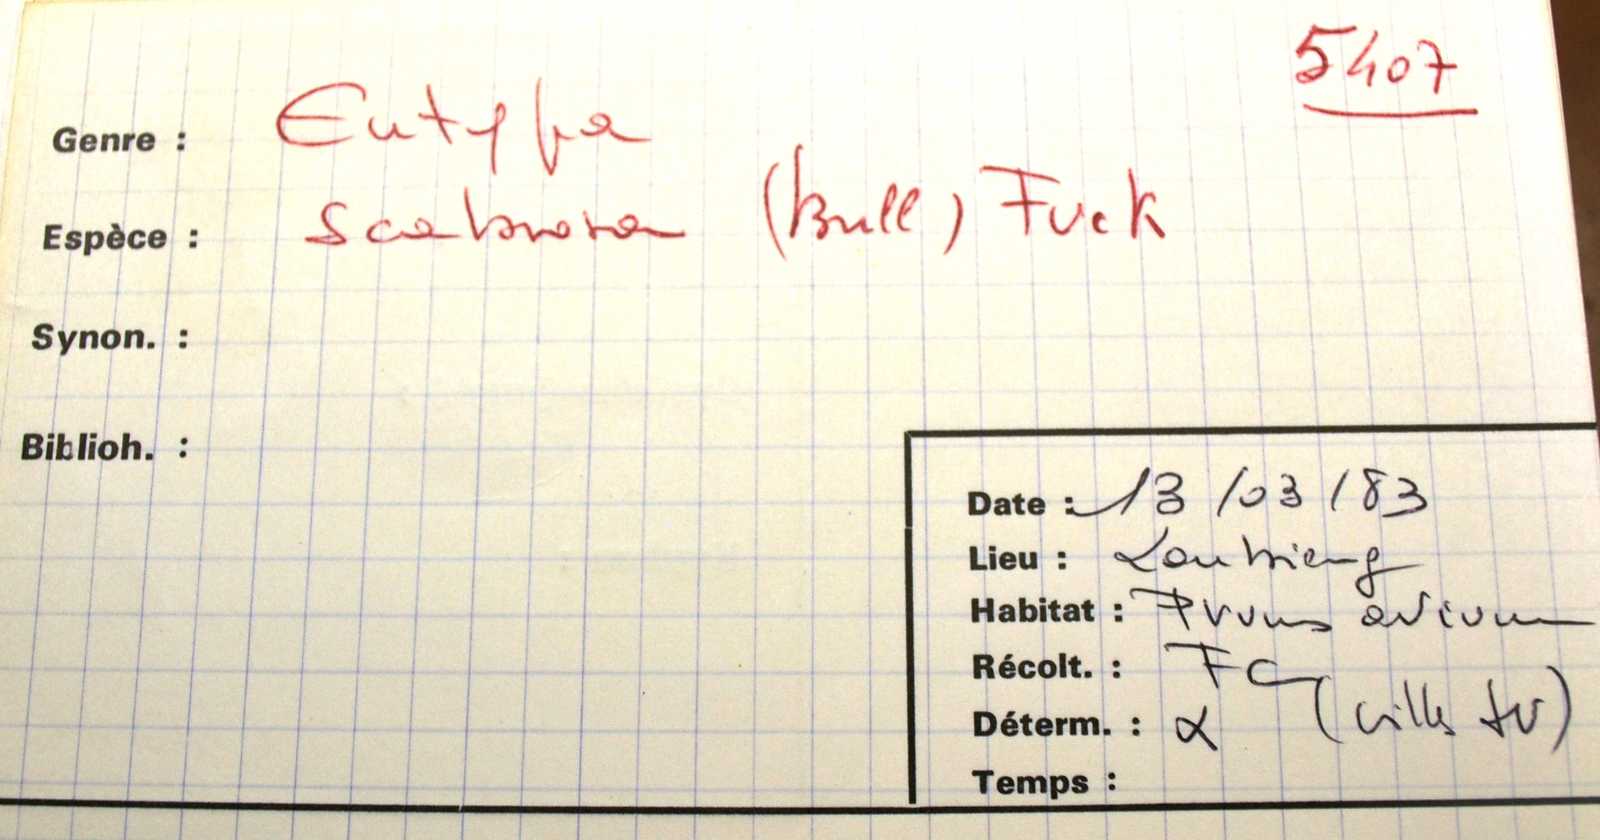 5407
Genre : Eutypa
Espèce : scabrosa (Bull) Fuck
Synon. :
Biblioh. :
Date : 13/03/83
Lieu : Loubieng
Habitat : Prunus avium
Récolt. : FC
Déterm. : α
Temps :